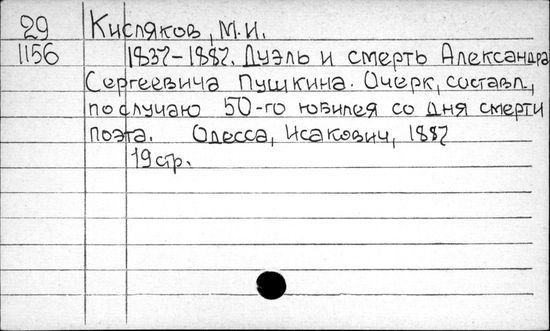 29 Кисляков, М.И.
1156 1837-1887. Дуэль и смерть Александра
Сергеевича Пушкина. Очерк, составл.,
по случаю 50-го юбилея со дня смерти
поэта. Одесса, Исакович, 1887
19 стр.